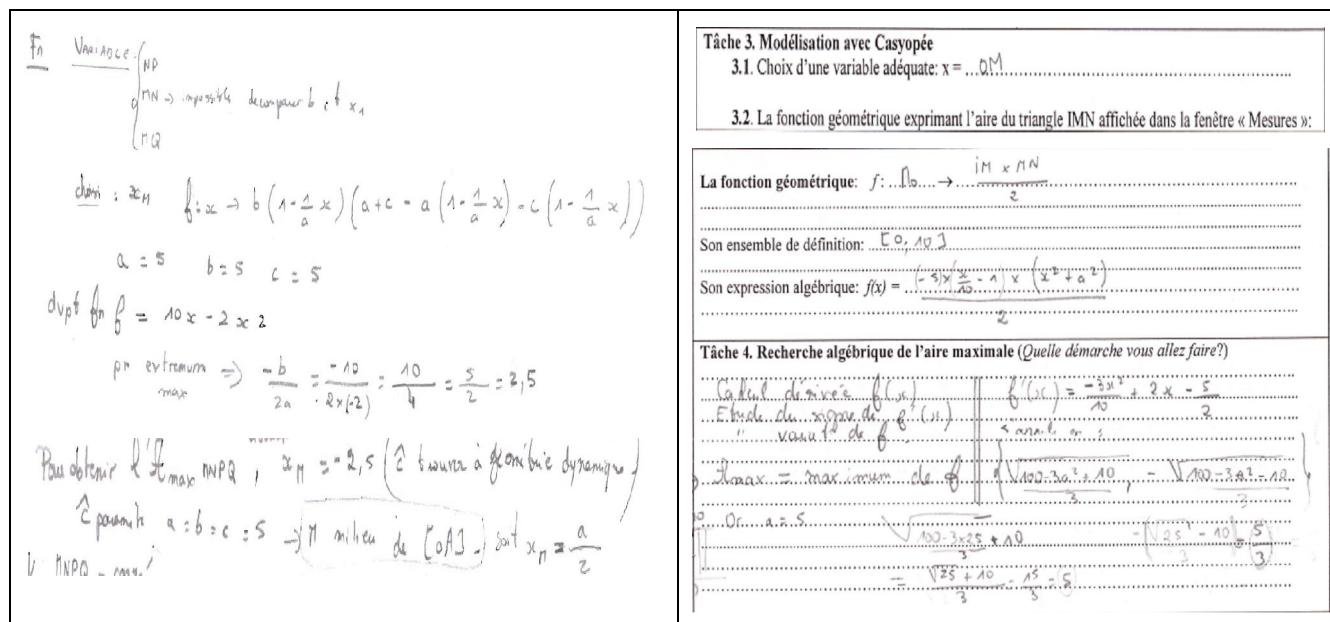 Fn VARIABLE
NP
MN → impossible
MQ
choisi : x_M f : x → b (1 - 1/a x) (a + c - a (1 - 1/a x) - c (1 - 1/a x))
a = 5 b = 5 c = 5
dvpt fn f = 10x - 2x2
pr extremum max ⇒ -b/2a = -10/2×(-2) = 10/4 = 5/2 = 2,5
Pour obtenir l'A_max MNPQ, x_M = -2,5 (ĉ trouver à géométrie dynamique)
a = b = c = 5 → M milieu de [OA] → soit x_M = a/2
Tâche 3. Modélisation avec Casyopée
3.1. Choix d'une variable adéquate: x = OM
3.2. La fonction géométrique exprimant l'aire du triangle IMN affichée dans la fenêtre « Mesures »:
La fonction géométrique: f: → iM × MN / 2
Son ensemble de définition: [0, 10]
Son expression algébrique: f(x) = (-5) × (x/10 - 1) × (x² + a²) / 2
Tâche 4. Recherche algébrique de l'aire maximale (Quelle démarche vous allez faire?)
Calcul dérivée f(x) f'(x) = -3x²/10 + 2x - 5/2
Etude du signe de f'(x) s'annule en
" variat° de f
Amax = maximum de f { √100-3a² + 10 / 3, - √100-3a² - 10 / 3 }
Or a = 5 √100-3×25 + 10 / 3 - (√25 - 10 / 3) = 5/3
= √25 + 10 / 3 = 15/3 = 5